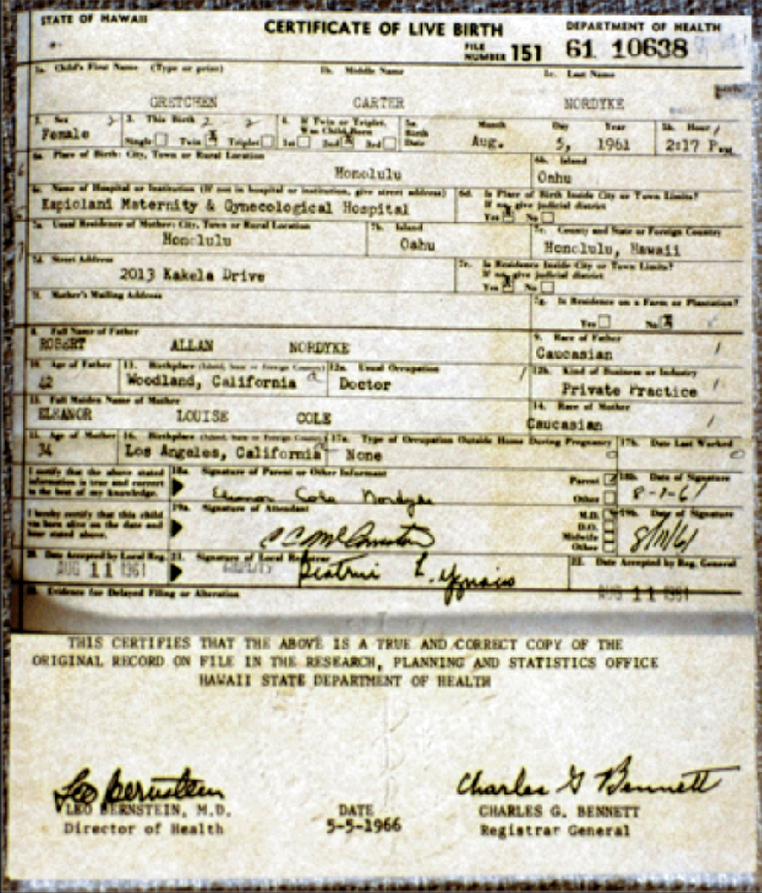 STATE OF HAWAII
CERTIFICATE OF LIVE BIRTH
DEPARTMENT OF HEALTH
FILE NUMBER 151 61 10638
1a. Child's First Name (Type or print) 1b. Middle Name 1c. Last Name
GRETCHEN CARTER NORDYKE
2. Sex 3. This Birth 4. If Twin or Triplet, Was Child Born 5a. Birth Date Month Day Year 5b. Hour
Female Single Twin Triplet 1st 2nd 3rd Aug. 5, 1961 2:17 P.M
6a. Place of Birth: City, Town or Rural Location 6b. Island
Honolulu Oahu
6c. Name of Hospital or Institution (If not in hospital or institution, give street address) 6d. Is Place of Birth Inside City or Town Limits? If no, give judicial district
Kapiolani Maternity & Gynecological Hospital Yes No
7a. Usual Residence of Mother: City, Town or Rural Location 7b. Island 7c. County and State or Foreign Country
Honolulu Oahu Honolulu, Hawaii
7d. Street Address 7e. Is Residence Inside City or Town Limits? If no, give judicial district
2013 Kakela Drive Yes No
7f. Mother's Mailing Address 7g. Is Residence on a Farm or Plantation?
Yes No
8. Full Name of Father 9. Race of Father
ROBERT ALLAN NORDYKE Caucasian
10. Age of Father 11. Birthplace (Island, State or Foreign Country) 12a. Usual Occupation 12b. Kind of Business or Industry
42 Woodland, California Doctor Private Practice
13. Full Maiden Name of Mother 14. Race of Mother
ELEANOR LOUISE COLE Caucasian
15. Age of Mother 16. Birthplace (Island, State or Foreign Country) 17a. Type of Occupation Outside Home During Pregnancy 17b. Date Last Worked
34 Los Angeles, California None
I certify that the above stated information is true and correct to the best of my knowledge. 18a. Signature of Parent or Other Informant Parent Other 18b. Date of Signature
Eleanor Cole Nordyke 8-7-61
I hereby certify that this child was born alive on the date and hour stated above. 19a. Signature of Attendant M.D. D.O. Midwife Other 19b. Date of Signature
8/11/61
20. Date Accepted by Local Reg. 21. Signature of Local Registrar 22. Date Accepted by Reg. General
AUG 11 1961 AUG 11 1961
23. Evidence for Delayed Filing or Alteration
THIS CERTIFIES THAT THE ABOVE IS A TRUE AND CORRECT COPY OF THE
ORIGINAL RECORD ON FILE IN THE RESEARCH, PLANNING AND STATISTICS OFFICE
HAWAII STATE DEPARTMENT OF HEALTH
Leo Bernstein Charles G Bennett
LEO BERNSTEIN, M.D. DATE CHARLES G. BENNETT
Director of Health 5-5-1966 Registrar General